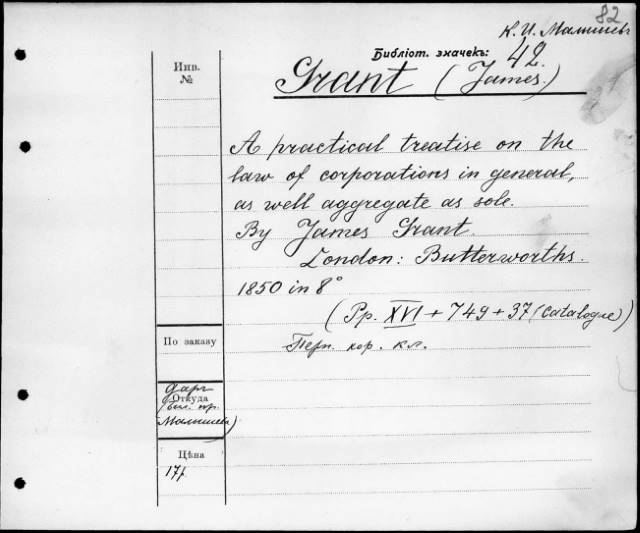 82
К. И. Малышевъ
Библіот. значекъ: 42.
Инв.
№
Grant (James.)
A practical treatise on the
law of corporations in general,
as well aggregate as sole.
By James Grant.
London: Butterworths.
1850 in 8°
(Pp. XVI + 749 + 37 (catalogue))
По заказу
Перп. кор. кл.
даръ
Откуда
(биб. пр.
Малышева)
Цѣна